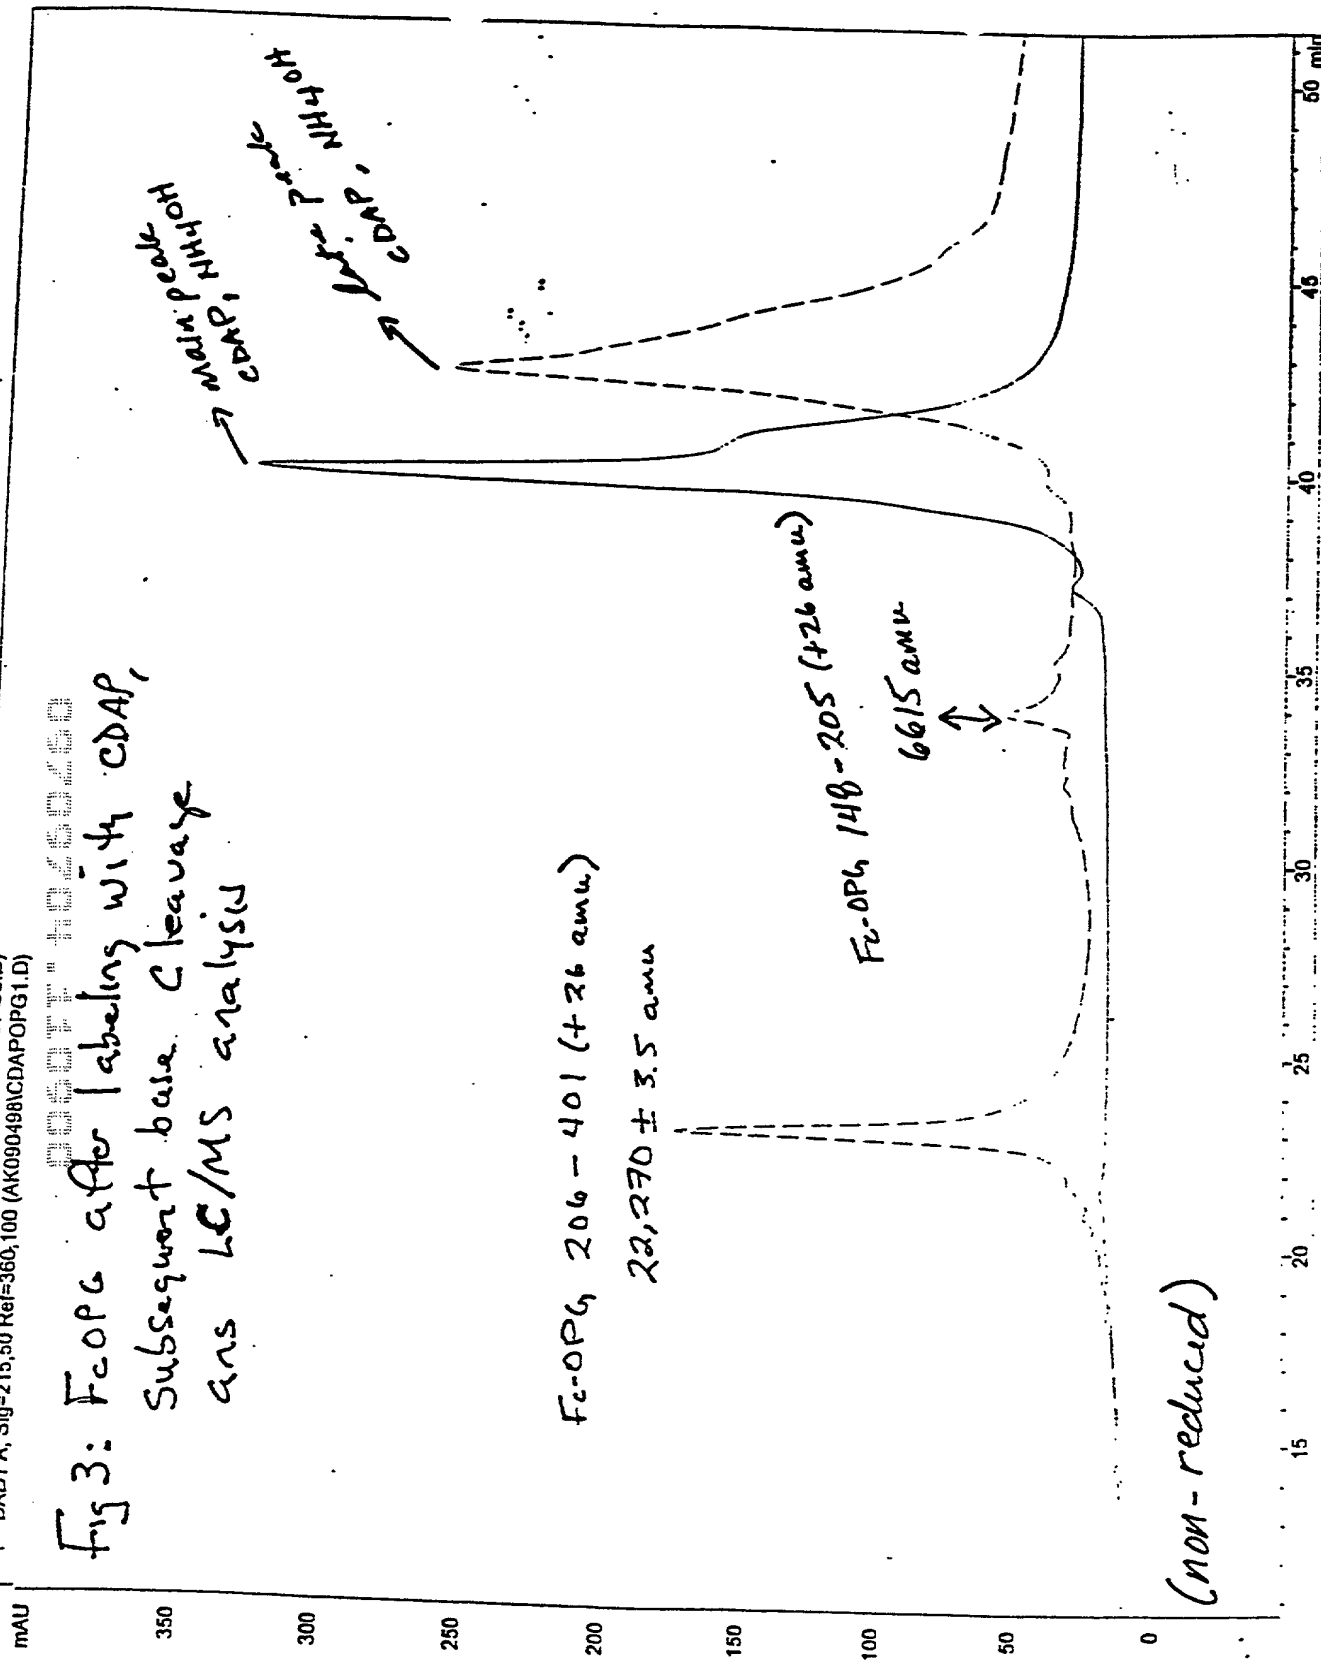 DAD1 A, Sig=215,50 Ref=360,100 (AK090498\CDAPOPG1.D)
mAU
Fig 3: FcOPG after labeling with CDAP,
Subsequent base cleavage
ans LC/MS analysis
main peak
CDAP, NH4OH
late peak
CDAP, NH4OH
Fc-OPG 206-401 (+26 amu)
22,270 ± 3.5 amu
Fc-OPG 148-205 (+26 amu)
6615 amu
(non-reduced)
350
300
250
200
150
100
50
0
15
20
25
30
35
40
45
50
min